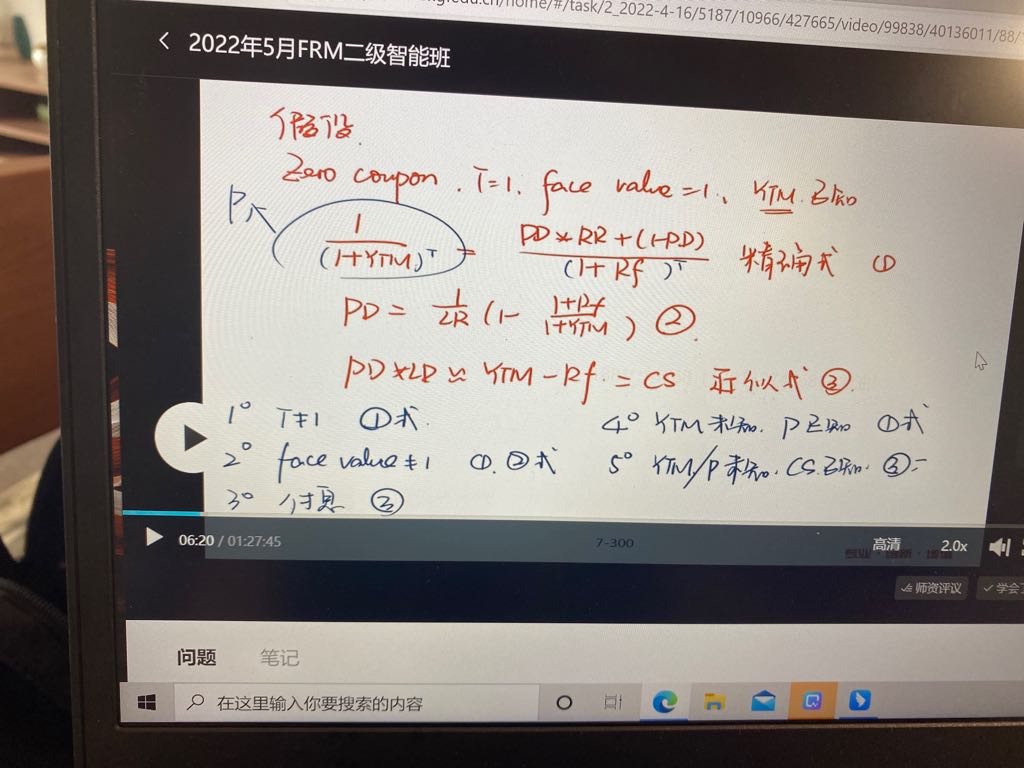 edu.cn/home/#/task/2_2022-4-16/5187/10966/427665/video/99838/40136011/88/
2022年5月FRM二级智能班
假设
Zero coupon. T=1. face value=1、YTM 已知
P
1/(1+YTM)^T = PD*RR+(1-PD)/(1+Rf)^T 精确式 ①
PD = 1/LR (1- 1+Rf/1+YTM) ②
PD*LR ≈ YTM-Rf = CS 近似式 ③
1° T≠1 ①式.
4° YTM未知. P已知 ①式
2° face value≠1 ①.②式
5° YTM/P未知. CS已知. ③=
3° 付息 ③
06:20 / 01:27:45
7-300
高清
2.0x
师资评议
学会了
问题 笔记
在这里输入你要搜索的内容